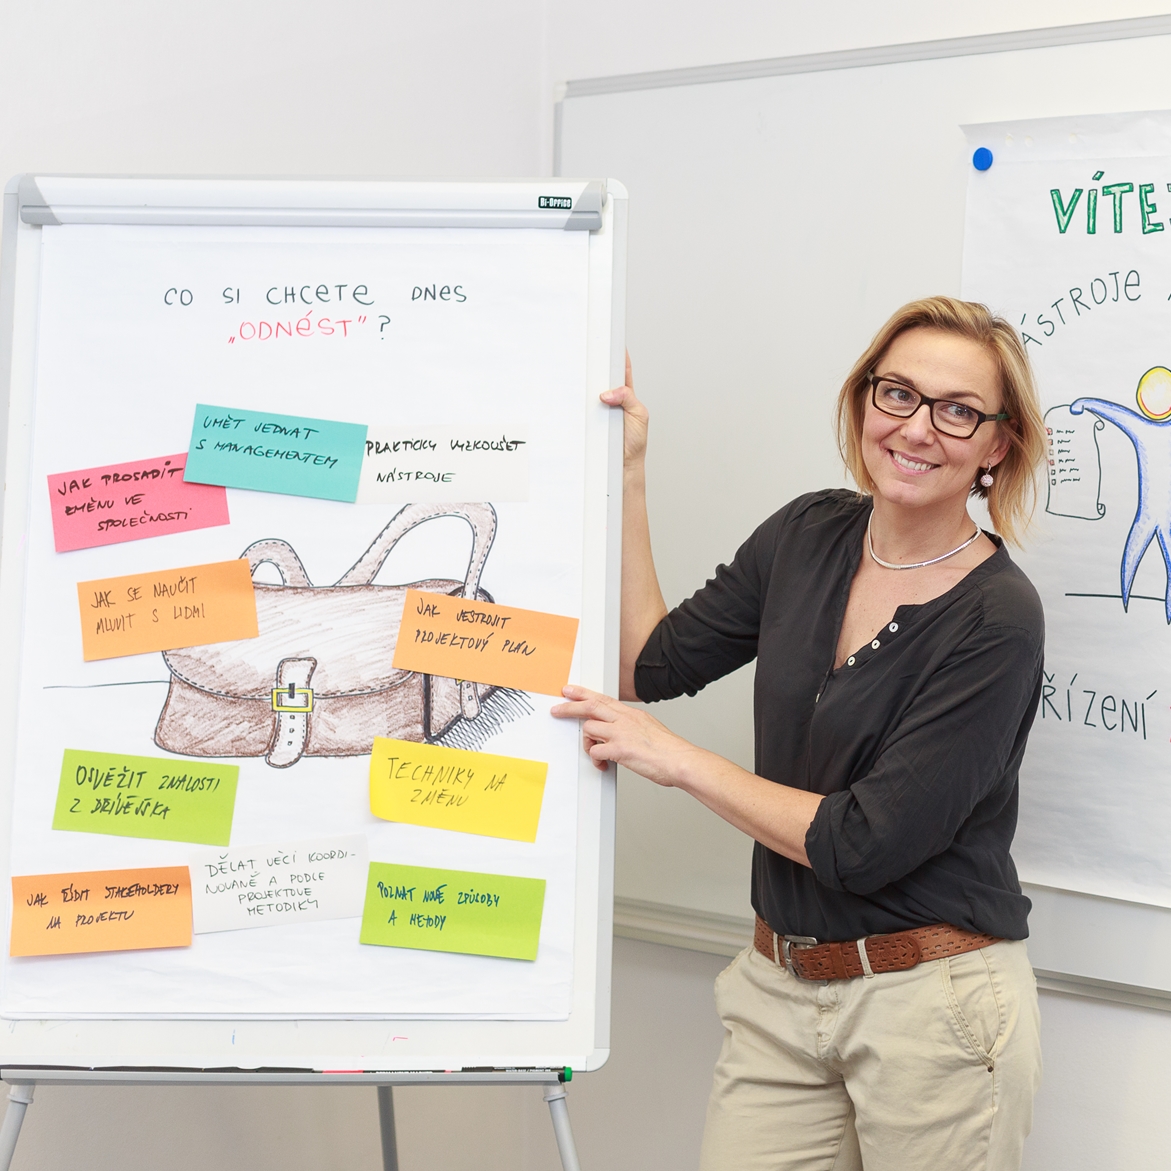 Bi-Office
CO SI CHCETE DNES
„ODNÉST" ?
UMĚT JEDNAT
S MANAGEMENTEM
PRAKTICKY VYZKOUŠET
NÁSTROJE
JAK PROSADIT
ZMĚNU VE
SPOLEČNOSTI
JAK SE NAUČIT
MLUVIT S LIDMI
JAK SESTROJIT
PROJEKTOVÝ PLÁN
OSVĚŽIT ZNALOSTI
Z DŘÍVĚJŠKA
TECHNIKY NA
ZMĚNU
JAK ŘÍDIT STAKEHOLDERY
NA PROJEKTU
DĚLAT VĚCI KOORDI-
NOVANĚ A PODLE
PROJEKTOVÉ
METODIKY
POZNAT NOVÉ ZPŮSOBY
A METODY
VÍTE
ÁSTROJE
ŘÍZENÍ